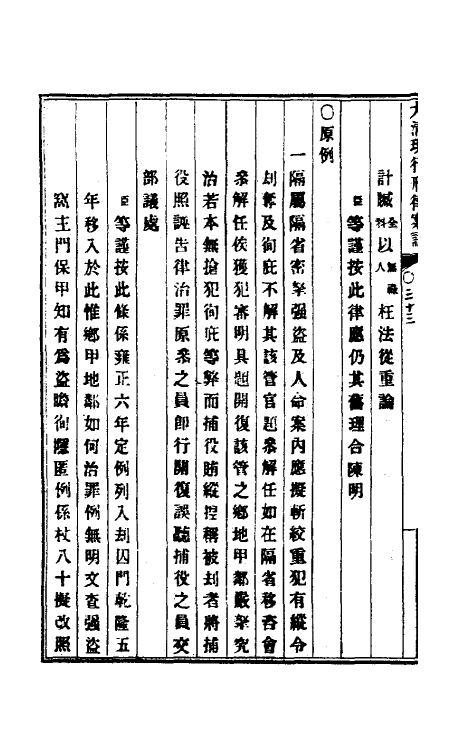 大清現行刑律案語
三十三
計贓全科以無祿人枉法從重論
臣等謹按此律應仍其舊理合陳明
○原例
一隔屬隔省密拏强盜及人命案內應擬斬絞重犯有縱令
刦奪及徇庇不解其該管官題叅解任如在隔省移咨會
叅解任俟獲犯審明具題開復該管之鄉地甲鄰嚴拏究
治若本無搶犯徇庇等弊而捕役賄縱揑稱被刦者將捕
役照誣告律治罪原叅之員即行開復誤聽捕役之員交
部議處
臣等謹按此條係雍正六年定例列入刦囚門乾隆五
年移入於此惟鄉甲地鄰如何治罪例無明文查强盜
窩主門保甲知有為盜瞻徇隱匿例係杖八十擬改照